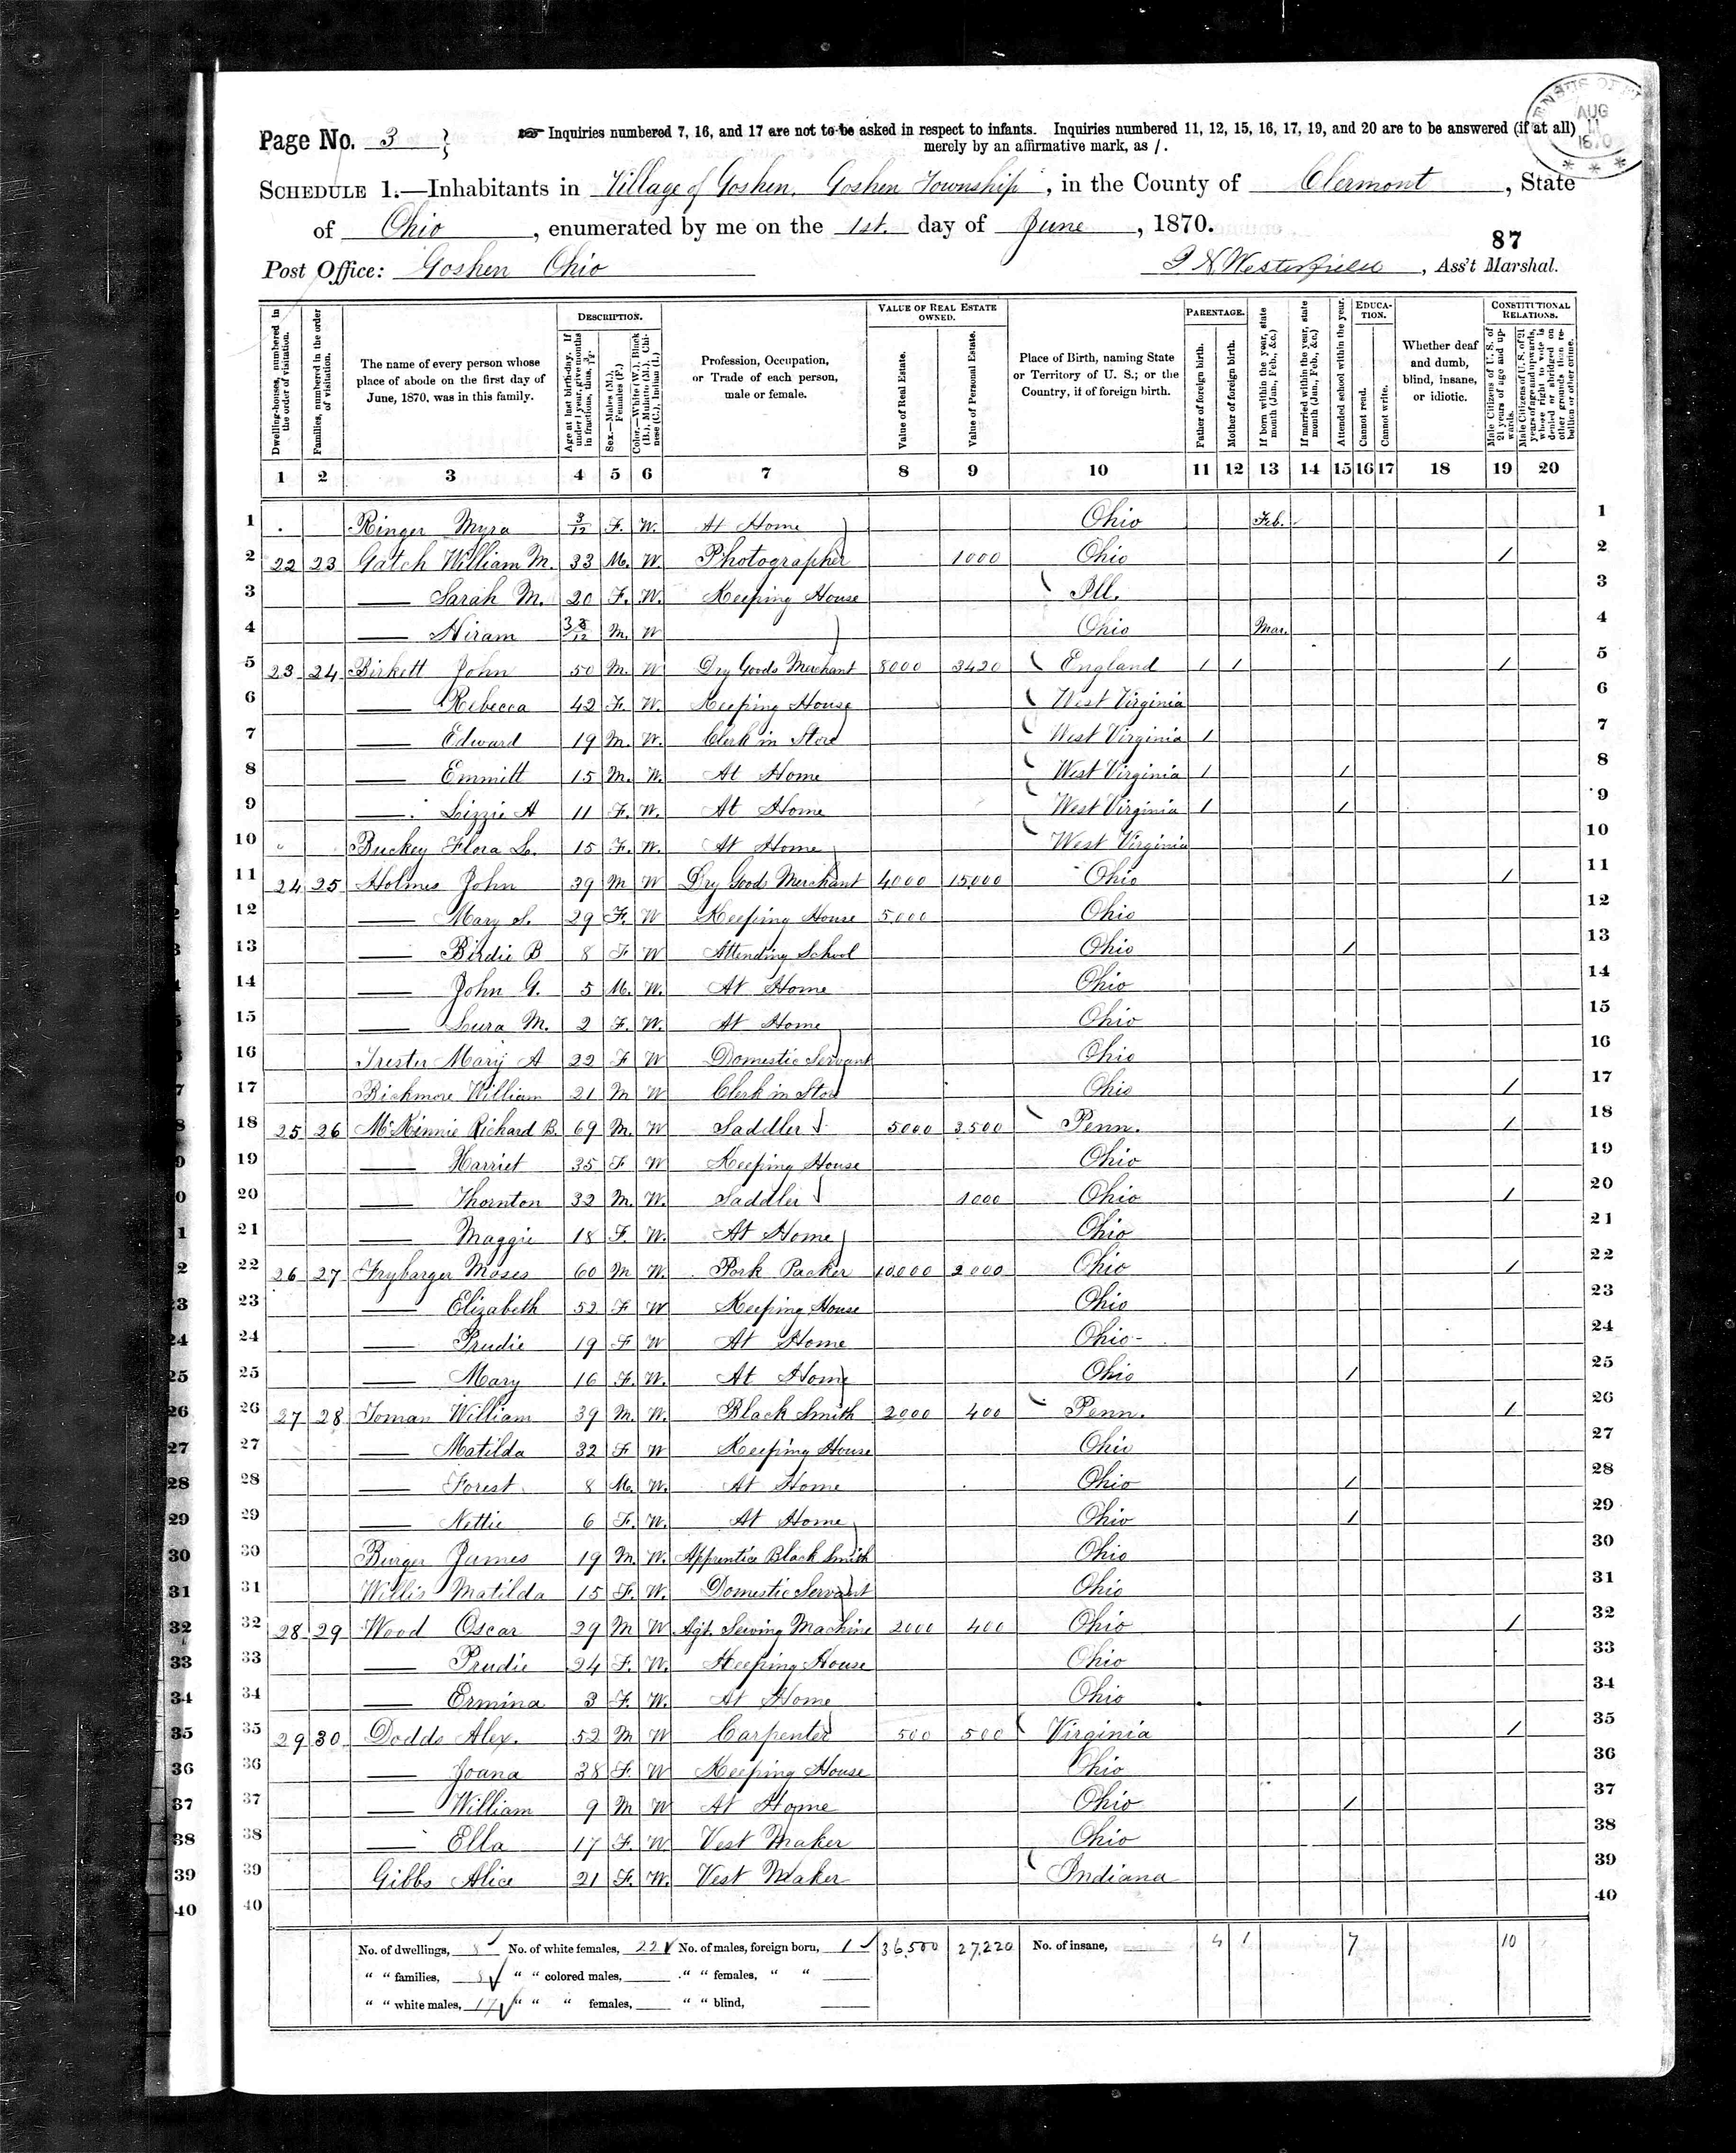 Page No. 3
Inquiries numbered 7, 16, and 17 are not to be asked in respect to infants. Inquiries numbered 11, 12, 15, 16, 17, 19, and 20 are to be answered (if at all)
merely by an affirmative mark, as /.
AUG
11
1870
SCHEDULE 1.—Inhabitants in Village of Goshen, Goshen Township, in the County of Clermont, State
of Ohio, enumerated by me on the 1st. day of June, 1870.
87
Post Office: Goshen Ohio
Westerfield, Ass't Marshal.
Dwelling-houses, numbered in the order of visitation.
Families, numbered in the order of visitation.
The name of every person whose place of abode on the first day of June, 1870, was in this family.
DESCRIPTION.
Age at last birth-day. If under 1 year, give months in fractions, thus, 3/12.
Sex.—Males (M.), Females (F.)
Color.—White (W.), Black (B.), Mulatto (M.), Chinese (C.), Indian (I.)
Profession, Occupation, or Trade of each person, male or female.
VALUE OF REAL ESTATE OWNED.
Value of Real Estate.
Value of Personal Estate.
Place of Birth, naming State or Territory of U. S.; or the Country, if of foreign birth.
PARENTAGE.
Father of foreign birth.
Mother of foreign birth.
If born within the year, state month (Jan., Feb., &c.)
If married within the year, state month (Jan., Feb., &c.)
Attended school within the year.
EDUCATION.
Cannot read.
Cannot write.
Whether deaf and dumb, blind, insane, or idiotic.
CONSTITUTIONAL RELATIONS.
Male Citizens of U. S. of 21 years of age and upwards.
Male Citizens of U. S. of 21 years of age and upwards, whose right to vote is denied or abridged on other grounds than rebellion or other crime.
1 2 3 4 5 6 7 8 9 10 11 12 13 14 15 16 17 18 19 20
1 Ringer Myra 3/12 F. W. At Home Ohio Feb. 1
2 22 23 Gatch William M. 33 M. W. Photographer 1000 Ohio / 2
3 —— Sarah M. 20 F. W. Keeping House Ill. 3
4 —— Hiram 3/12 M. W Ohio Mar. 4
5 23 24 Birkett John 50 M. W Dry Goods Merchant 8000 3420 England / / / 5
6 —— Rebecca 42 F. W. Keeping House West Virginia 6
7 —— Edward 19 M. W. Clerk in Store West Virginia / 7
8 —— Emmitt 15 M. W. At Home West Virginia / / 8
9 —— Lizzie A 11 F. W. At Home West Virginia / / 9
10 Buckey Flora L. 15 F. W. At Home West Virginia 10
11 24 25 Holmes John 39 M W Dry Goods Merchant 4000 15000 Ohio / 11
12 —— Mary S. 29 F. W Keeping House 5000 Ohio 12
13 —— Birdie B 8 F W Attending School Ohio / 13
14 —— John G. 5 M. W. At Home Ohio 14
15 —— Lura M. 2 F. W. At Home Ohio 15
16 Trester Mary A 22 F W Domestic Servant Ohio 16
17 Bickmore William 21 M W Clerk in Store Ohio / 17
18 25 26 McKinnie Richard B. 69 M. W Saddler 5000 3500 Penn. / 18
19 —— Harriet 35 F W Keeping House Ohio 19
20 —— Thornton 32 M. W. Saddler 1000 Ohio / 20
21 —— Maggie 18 F. W. At Home Ohio 21
22 26 27 Frybarger Moses 60 M W. Pork Packer 10000 2000 Ohio / 22
23 —— Elizabeth 52 F W Keeping House Ohio 23
24 —— Prudie 19 F W At Home Ohio 24
25 —— Mary 16 F. W. At Home Ohio / 25
26 27 28 Toman William 39 M. W. Black Smith 2000 400 Penn. / 26
27 —— Matilda 32 F W Keeping House Ohio 27
28 —— Forest 8 M. W. At Home Ohio / 28
29 —— Nettie 6 F. W. At Home Ohio / 29
30 Burger James 19 M. W. Apprentice Black Smith Ohio 30
31 Willis Matilda 15 F. W. Domestic Servant Ohio 31
32 28 29 Wood Oscar 29 M W Agt. Sewing Machine 2000 400 Ohio / 32
33 —— Prudie 24 F. W. Keeping House Ohio 33
34 —— Ermina 3 F. W. At Home Ohio 34
35 29 30 Dodds Alex. 52 M W Carpenter 500 500 Virginia / 35
36 —— Joana 38 F. W Keeping House Ohio 36
37 —— William 9 M W At Home Ohio / 37
38 —— Ella 17 F. W. Vest Maker Ohio 38
39 Gibbs Alice 21 F. W. Vest Maker Indiana 39
40 40
No. of dwellings, 8 No. of white females, 22 No. of males, foreign born, 1 36,500 27,220 No. of insane, 4 1 7 10
" " families, 8 " " colored males, " " females, " "
" " white males, 17 " " " females, " " blind,